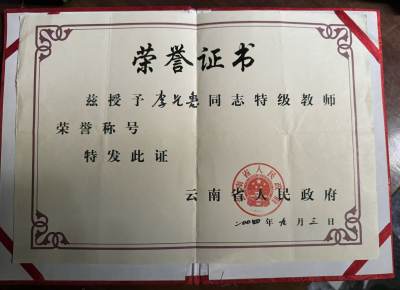 荣誉证书
兹授予李惠同志特级教师
荣誉称号
特发此证
云南省人民政府
云南省人民政府
二〇〇四年九月三日